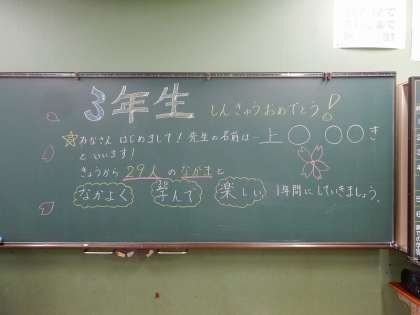 3年生 しんきゅうおめでとう!
☆みなさん はじめまして!先生の名前は…上○ ○○き
といいます!
きょうから 29人 の なかまと
なかよく 学んで 楽しい 1年間にしていきましょう。